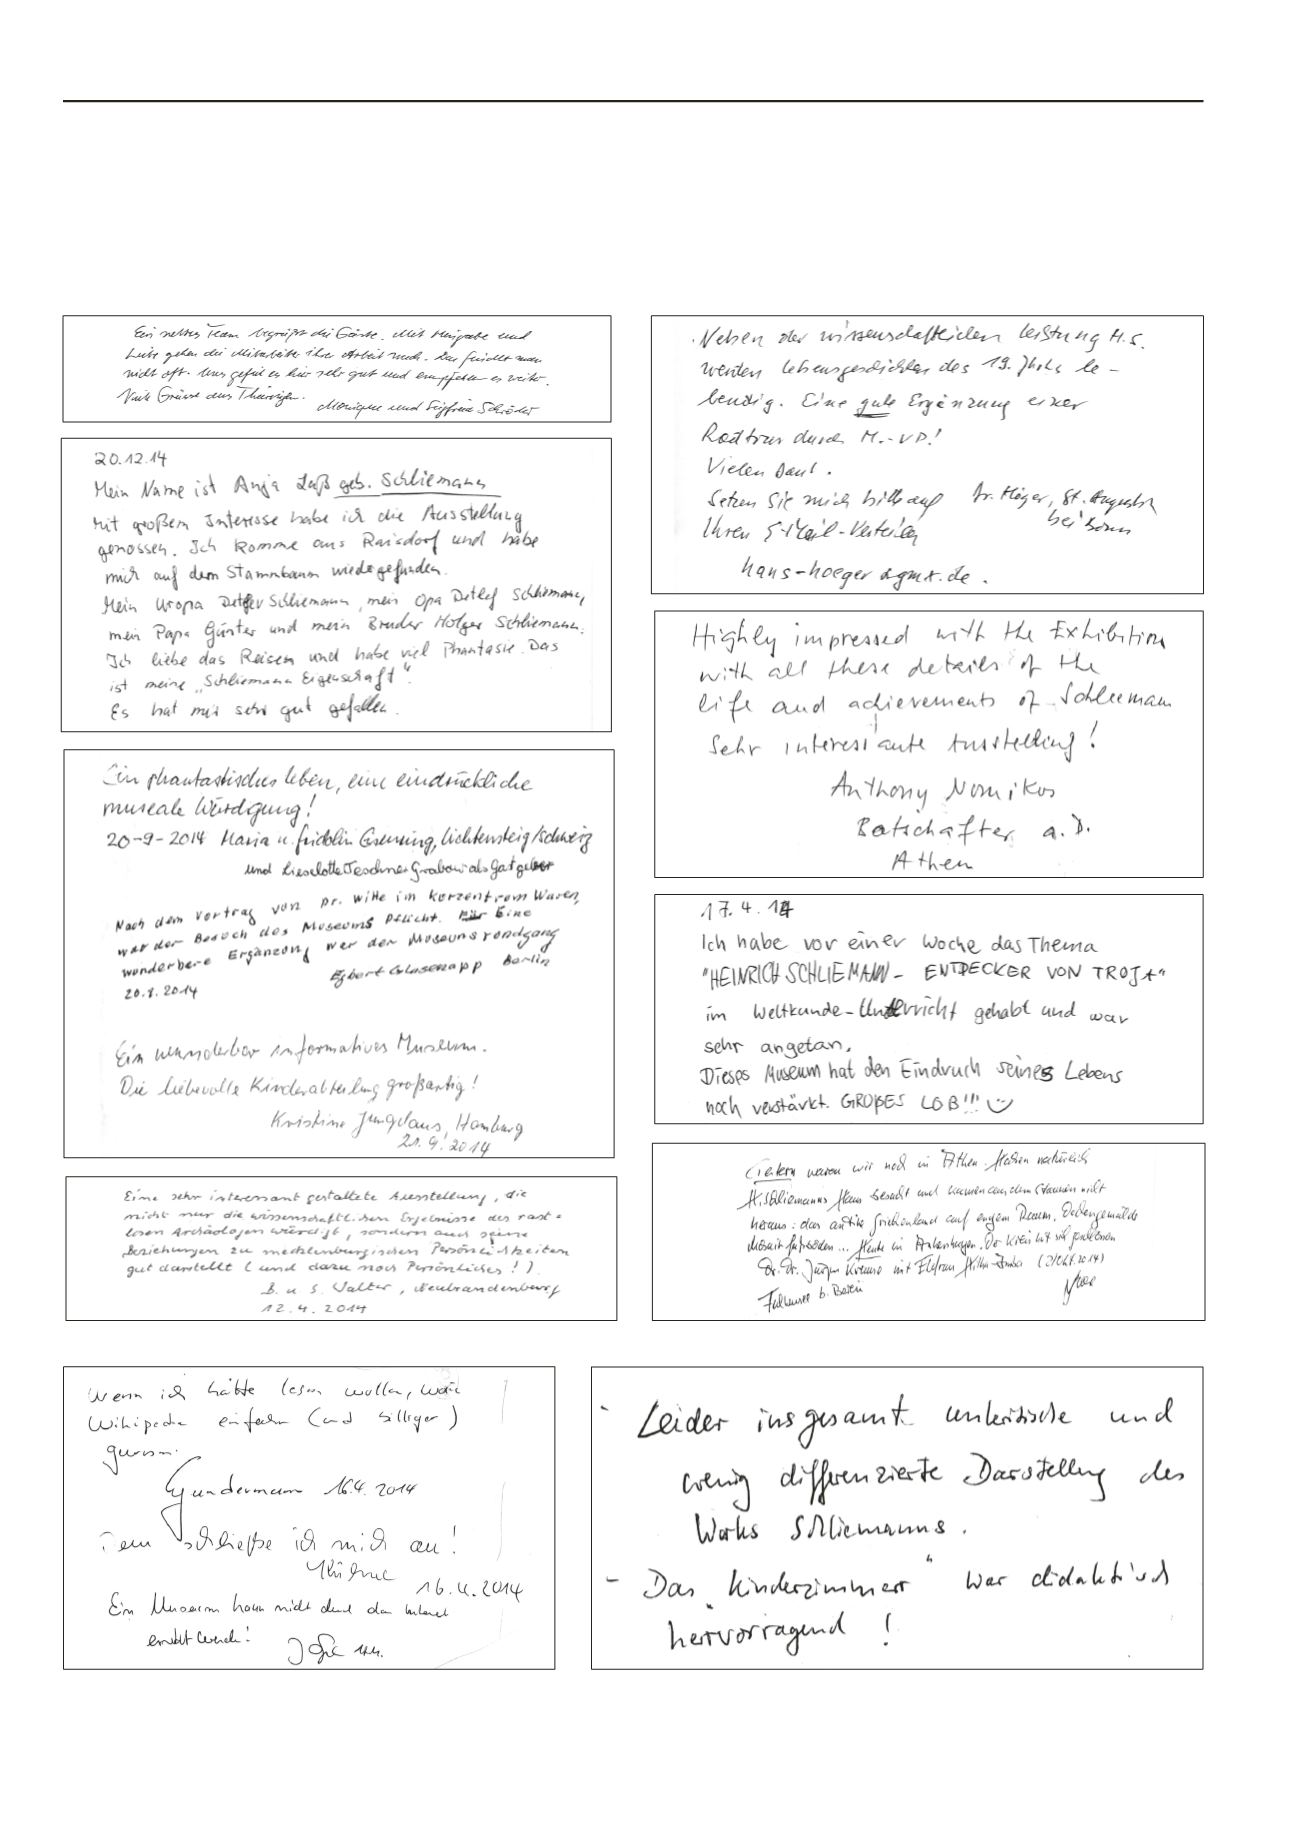 Ein nettes Team begrüßt die Gäste. Mit Hingabe und
Liebe gehen die Mitarbeiter ihrer Arbeit nach. Das findet man
nicht oft. Uns gefiel es hier sehr gut und empfehlen es weiter.
Viele Grüsse aus Thüringen.
Monique und Siegfried
20.12.14
Mein Name ist Anja Laß geb. Schliemann
Mit großem Interesse habe ich die Ausstellung
genossen. Ich komme aus Raisdorf und habe
mich auf dem Stammbaum wiedergefunden.
Mein Uropa Detlev Schliemann, mein Opa Detlef Schliemann,
mein Papa Günter und mein Bruder Holger Schliemann.
Ich liebe das Reisen und habe viel Phantasie. Das
ist meine „Schliemann Eigenschaft“.
Es hat mir sehr gut gefallen.
Ein phantastisches Leben, eine eindrückliche
museale Würdigung!
20-9-2014 Maria u. Fridolin Lichtensteig/Schweiz
und Lieselotte Teschner Grabow als Gastgeber
Nach dem Vortrag von Dr. Witte im Kurzentrum Waren,
war der Besuch des Museums Pflicht. Eine
wunderbere Ergänzung war der Museumsrundgang
Egbert Glasenapp Berlin
20.9.2014
Ein wunderbar informatives Museum.
Die liebevolle Kinderabteilung großartig!
Kristine Jungclaus, Hamburg
21.9.2014
Eine sehr interessant gestaltete Ausstellung, die
nicht nur die wissenschaftlichen Ergebnisse des rast-
losen Archäologen würdigt, sondern auch seine
Beziehungen zu mecklenburgischen Persönlichkeiten
gut darstellt (und dazu noch Persönliches!).
B. u S. Walter, Neubrandenburg
12.4.2014
Neben der wissenschaftlichen Leistung H.S.
werden Lebensgeschichten des 19. Jhdts le-
bendig. Eine gute Ergänzung einer
Radtour durch M.-VP!
Vielen Dank.
Setzen Sie mich bitte auf Dr. Höger, St. Augustin
Ihren E-Mail-Verteiler bei Bonn
hans-hoeger@gmx.de.
Highly impressed with the Exhibition
with all these details of the
life and achievements of Schliemann
Sehr interessante Ausstellung!
Anthony Nomikos
Botschafter a.D.
Athen
17.4.14
Ich habe vor einer Woche das Thema
"HEINRICH SCHLIEMANN - ENTDECKER VON TROJA"
im Weltkunde-Unterricht gehabt und war
sehr angetan.
Dieses Museum hat den Eindruck seines Lebens
noch verstärkt. GROßES LOB!!!
Gestern waren wir noch in Athen. Haben natürlich
H. Schliemanns Haus besucht und kamen aus dem Staunen nicht
heraus: das antike Griechenland auf engem Raum. Deckengemälde
Mosaikfußböden... Heute in Ankershagen. Der Kreis hat sich geschlossen
Dr. Dr. Jürgen mit Ehefrau
b.
Wenn ich hätte lesen wollen, wäre
Wikipedia einfacher (und billiger)
gewesen.
Gundermann 16.4.2014
Dem schließe ich mich an!
Kühne 16.4.2014
Ein Museum kann nicht durch das Internet
ersetzt werden!
- Leider insgesamt unkritische und
wenig differenzierte Darstellung des
Werks Schliemanns.
- Das „Kinderzimmer“ war didaktisch
hervorragend!